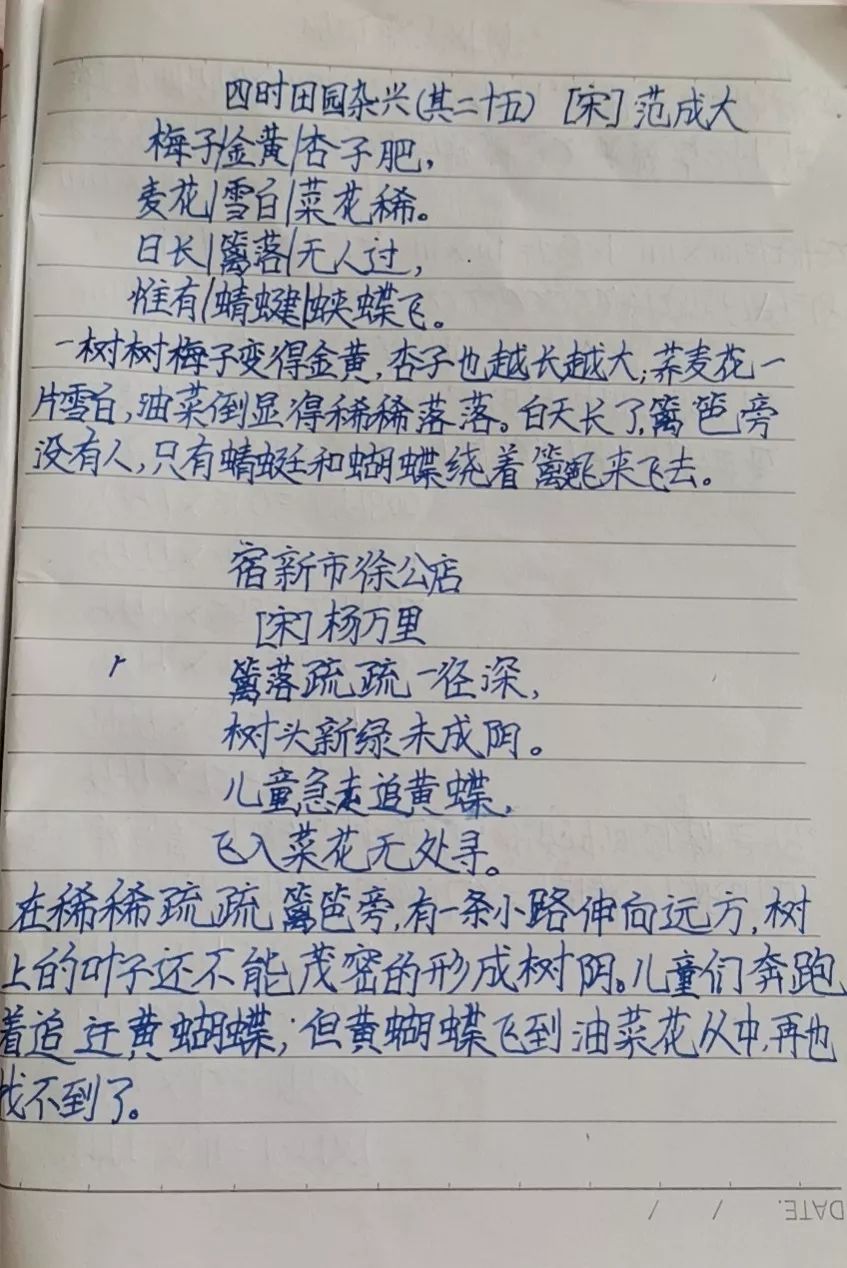 四时田园杂兴(其二十五) [宋] 范成大
梅子/金黄/杏子肥,
麦花/雪白/菜花稀。
日长/篱落/无人过,
惟有/蜻蜓/蛱蝶飞。
一树树梅子变得金黄,杏子也越长越大;荞麦花一
片雪白,油菜倒显得稀稀落落。白天长了,篱笆旁
没有人,只有蜻蜓和蝴蝶绕着篱飞来飞去。
宿新市徐公店
[宋] 杨万里
篱落疏疏一径深,
树头新绿未成阴。
儿童急走追黄蝶,
飞入菜花无处寻。
在稀稀疏疏篱笆旁,有一条小路伸向远方,树
上的叶子还不能茂密的形成树阴。儿童们奔跑
着追 黄蝴蝶;但黄蝴蝶飞到油菜花从中,再也
找不到了。
DATE. / /